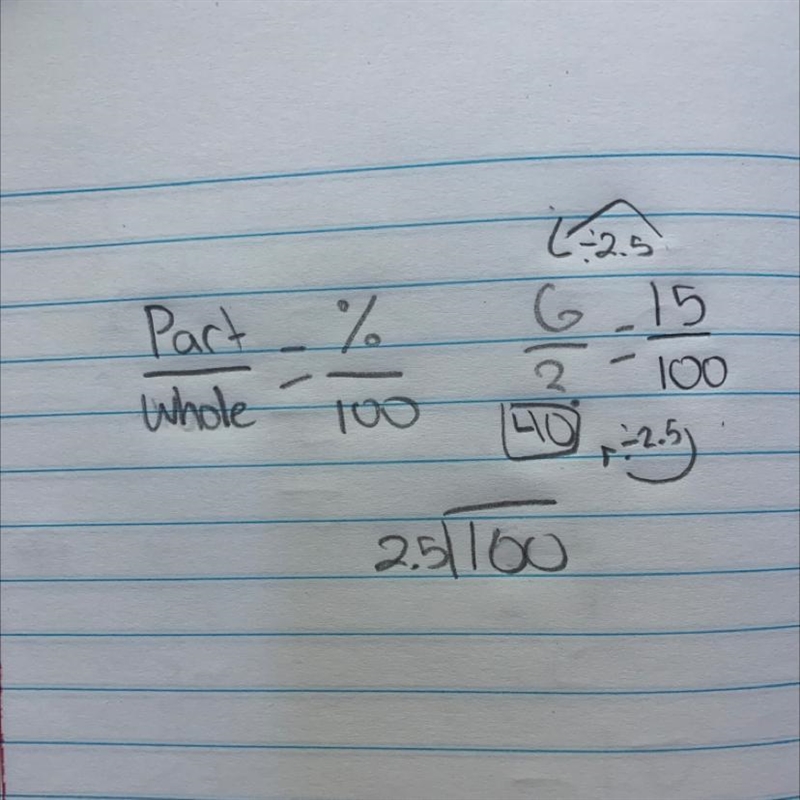 ÷2.5
Part/Whole = %/100
6/2 = 15/100
40
÷2.5
2.5⟌100